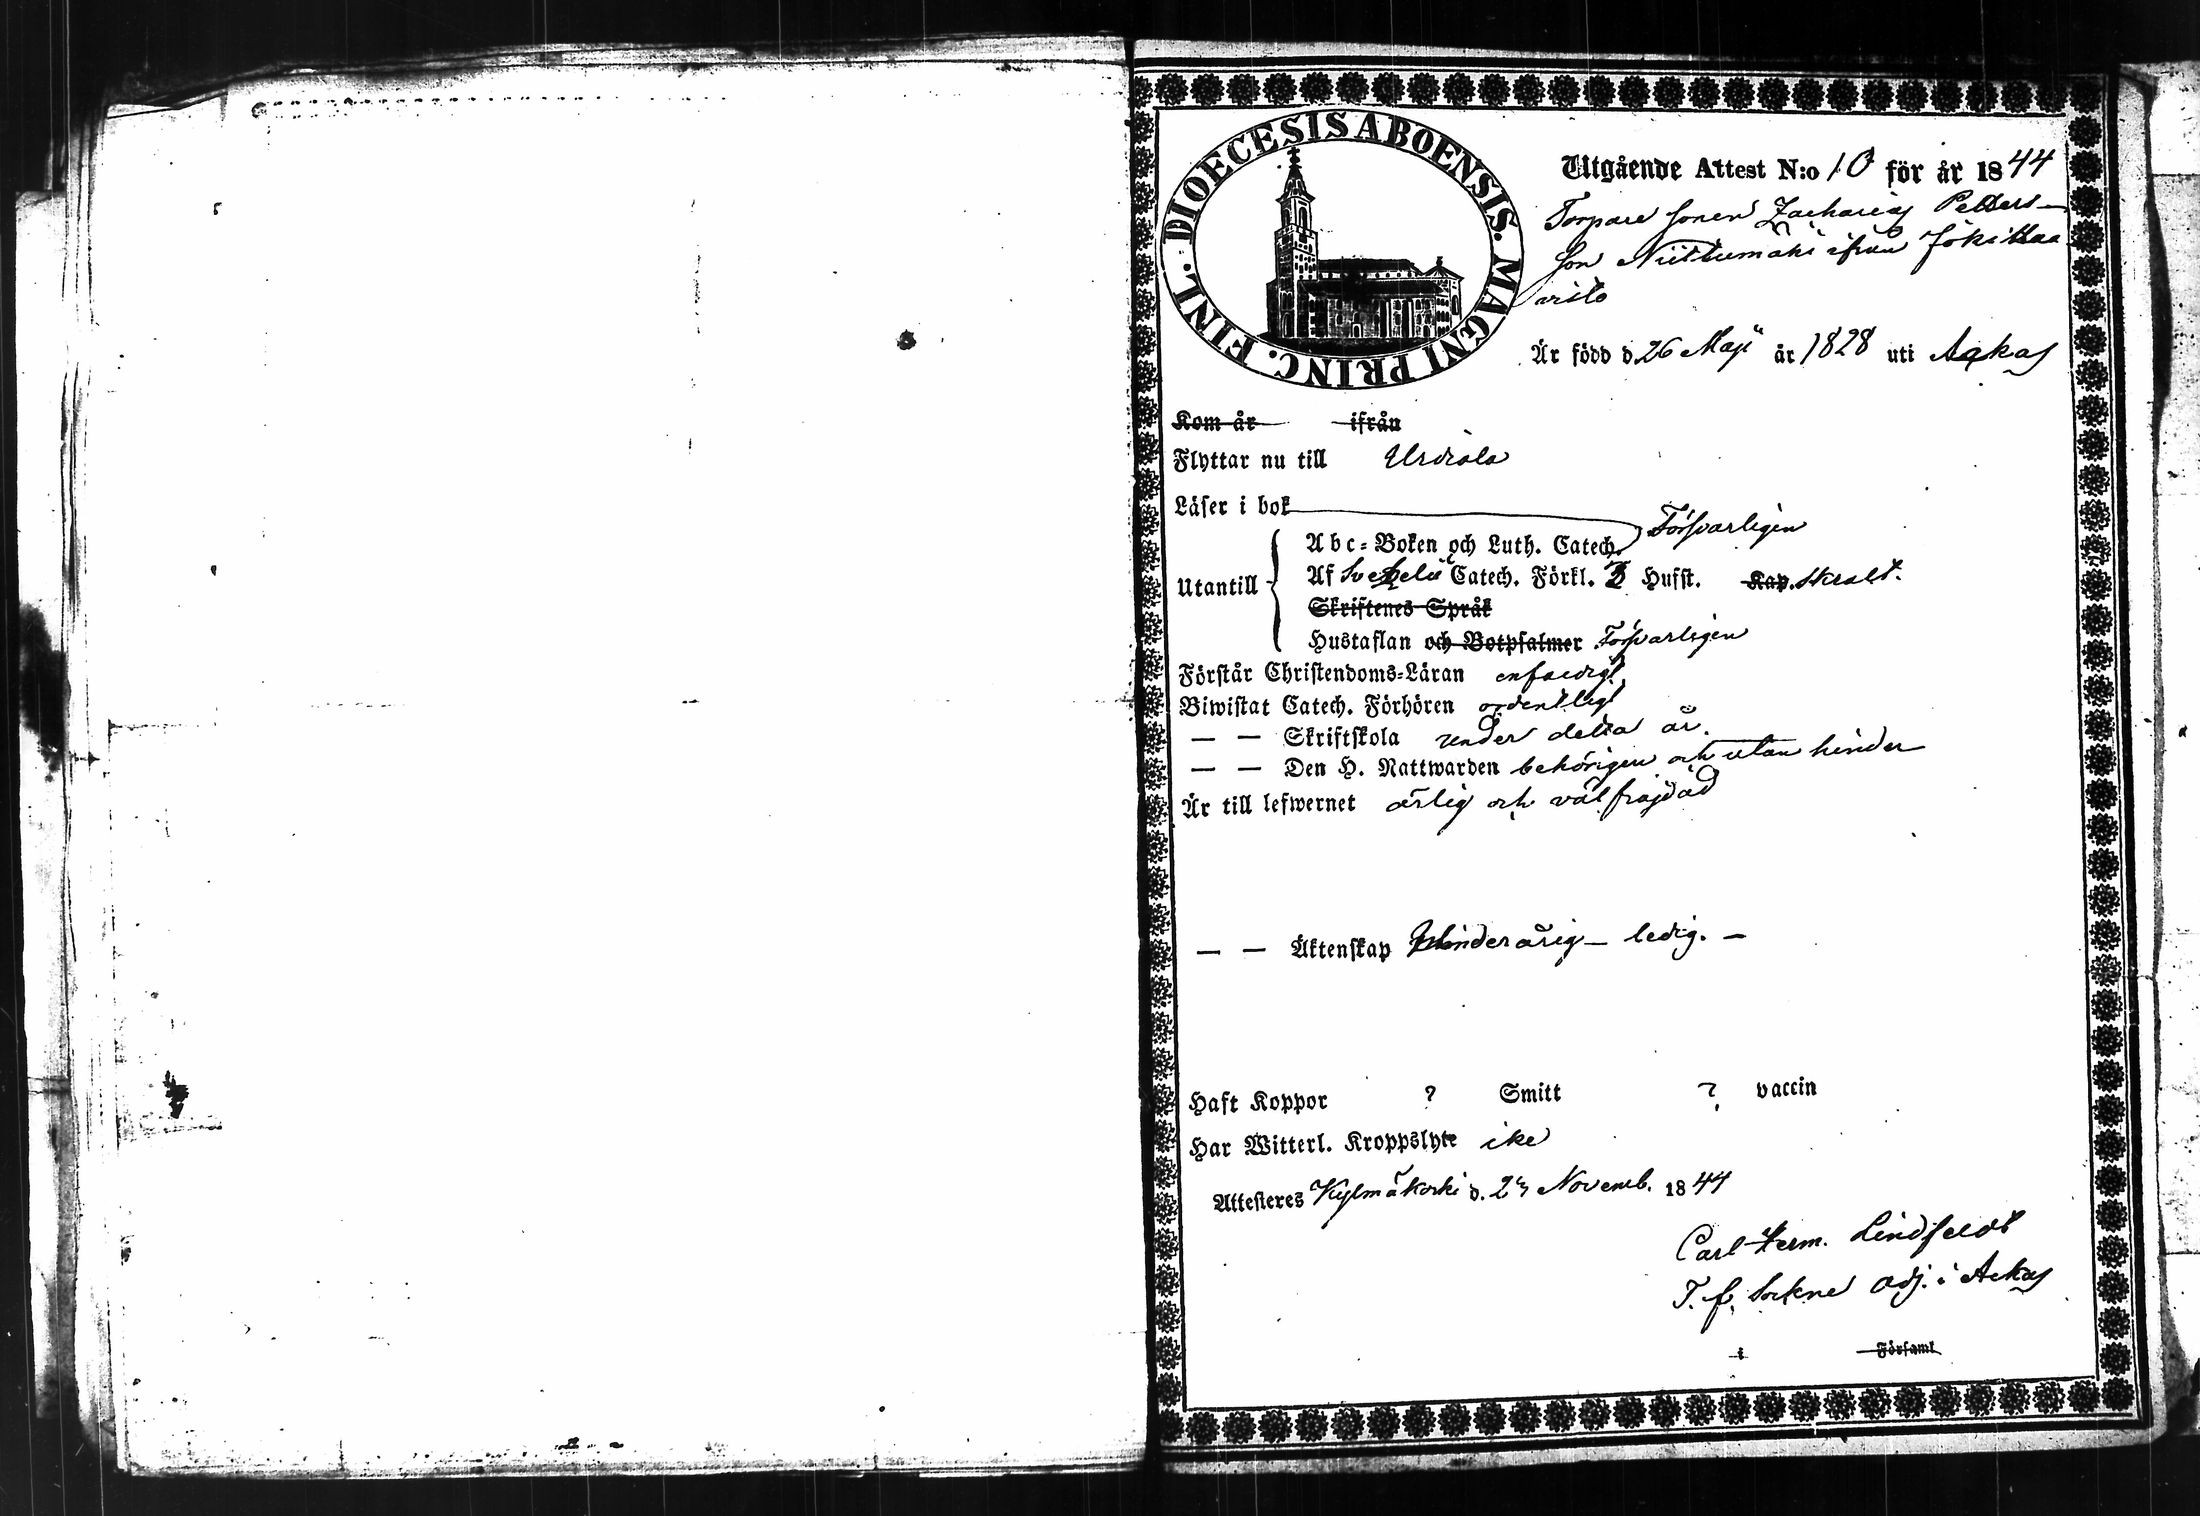 DIOECESIS ABOENSIS. MAGNI PRINC. FINL.
Utgående Attest N:o 10 för år 1844
Torpare sonen Zacharias Petters-
son Niittumäki ifrån Jokihaa
visto
Är född d. 26 Maji år 1828 uti Ackas
Kom år ifrån
Flyttar nu till Urdiala
Läser i bok Försvarligen
Abc-Boken och Luth. Catech.
Utantill Af Svebelii Catech. Förkl. 3 Hufst. Kap. skralt.
Skriftenes Språk
Hustaflan och Botpsalmer Försvarligen
Förstår Christendoms-Läran enfaldigt
Biwistat Catech. Förhören ordentligt
— — Skriftskola under detta år.
— — Den H. Nattwarden behörigen och utan hinder
Är till lefwernet ärlig och väl frejdad
— — Äktenskap Minderårig – ledig. –
Haft Koppor ? Smitt ? vaccin
Har Witterl. Kroppslyte ike
Attesteres Kylmäkoski d. Novemb. 1844
Carl Herm. Lindfeldt
T. f. Sockne Adj. i Ackas
i Församl